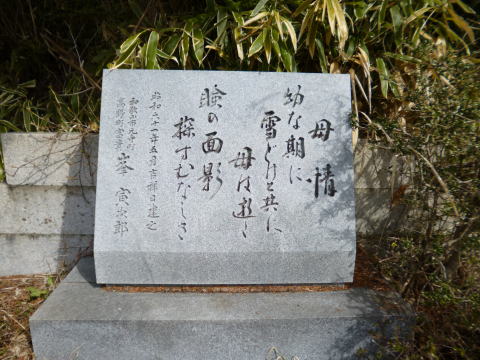 母情
幼な期に
雪どけと共に
母は逝く
瞼の面影
探すむなしさ
昭和六十一年五月吉祥日建之
和歌山市元寺町
峯 寅次郎